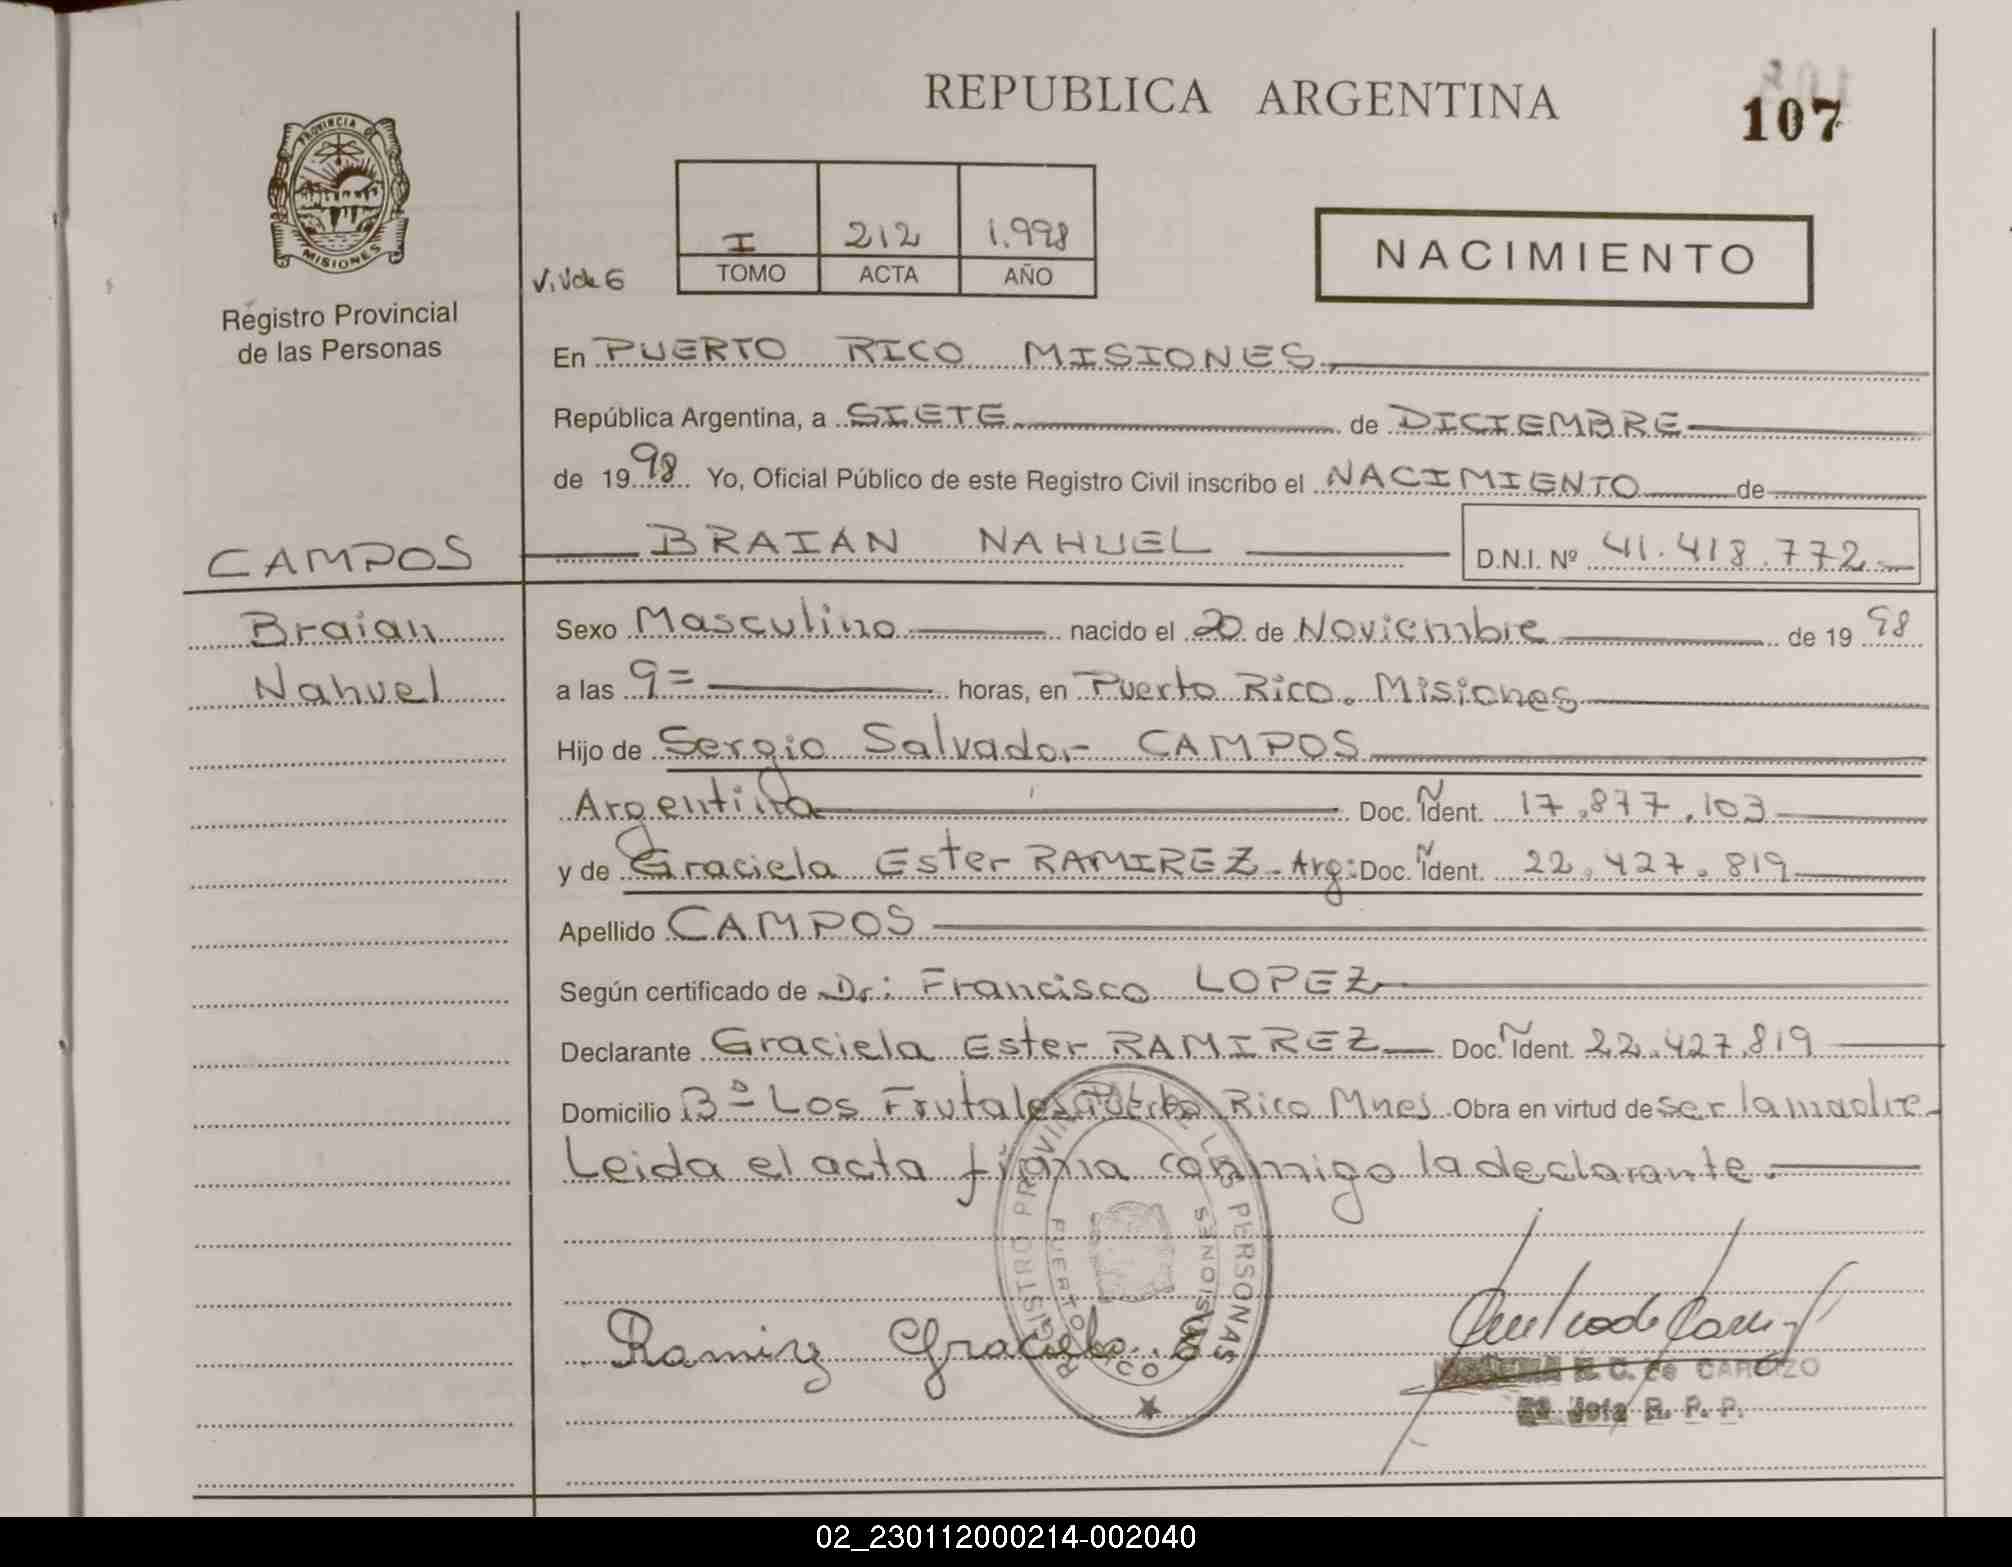 REPUBLICA ARGENTINA
107
PROVINCIA DE
MISIONES
Registro Provincial
de las Personas
I 212 1.998
TOMO ACTA AÑO
NACIMIENTO
En PUERTO RICO MISIONES
República Argentina, a SIETE de DICIEMBRE
de 1998 Yo, Oficial Público de este Registro Civil inscribo el NACIMIENTO de
CAMPOS BRAIAN NAHUEL D.N.I. Nº 41.418.772
Braian Sexo Masculino nacido el 20 de Noviembre de 1998
Nahuel a las 9= horas, en Puerto Rico. Misiones
Hijo de Sergio Salvador CAMPOS
Argentina Doc. Ident. 17.877.103
y de Graciela Ester RAMIREZ - Arg: Doc. Ident. 22.427.819
Apellido CAMPOS
Según certificado de Dr: Francisco LOPEZ
Declarante Graciela Ester RAMIREZ Doc. Ident. 22.427.819
Domicilio Bº Los Frutales Puerto Rico Mnes Obra en virtud de ser la madre
Leida el acta firma conmigo la declarante.
REGISTRO PROVINCIAL DE LAS PERSONAS
PUERTO RICO MISIONES
Ramirez Graciela E
R. C. de CARDOZO
Jefa R. P. P.
02_230112000214-002040